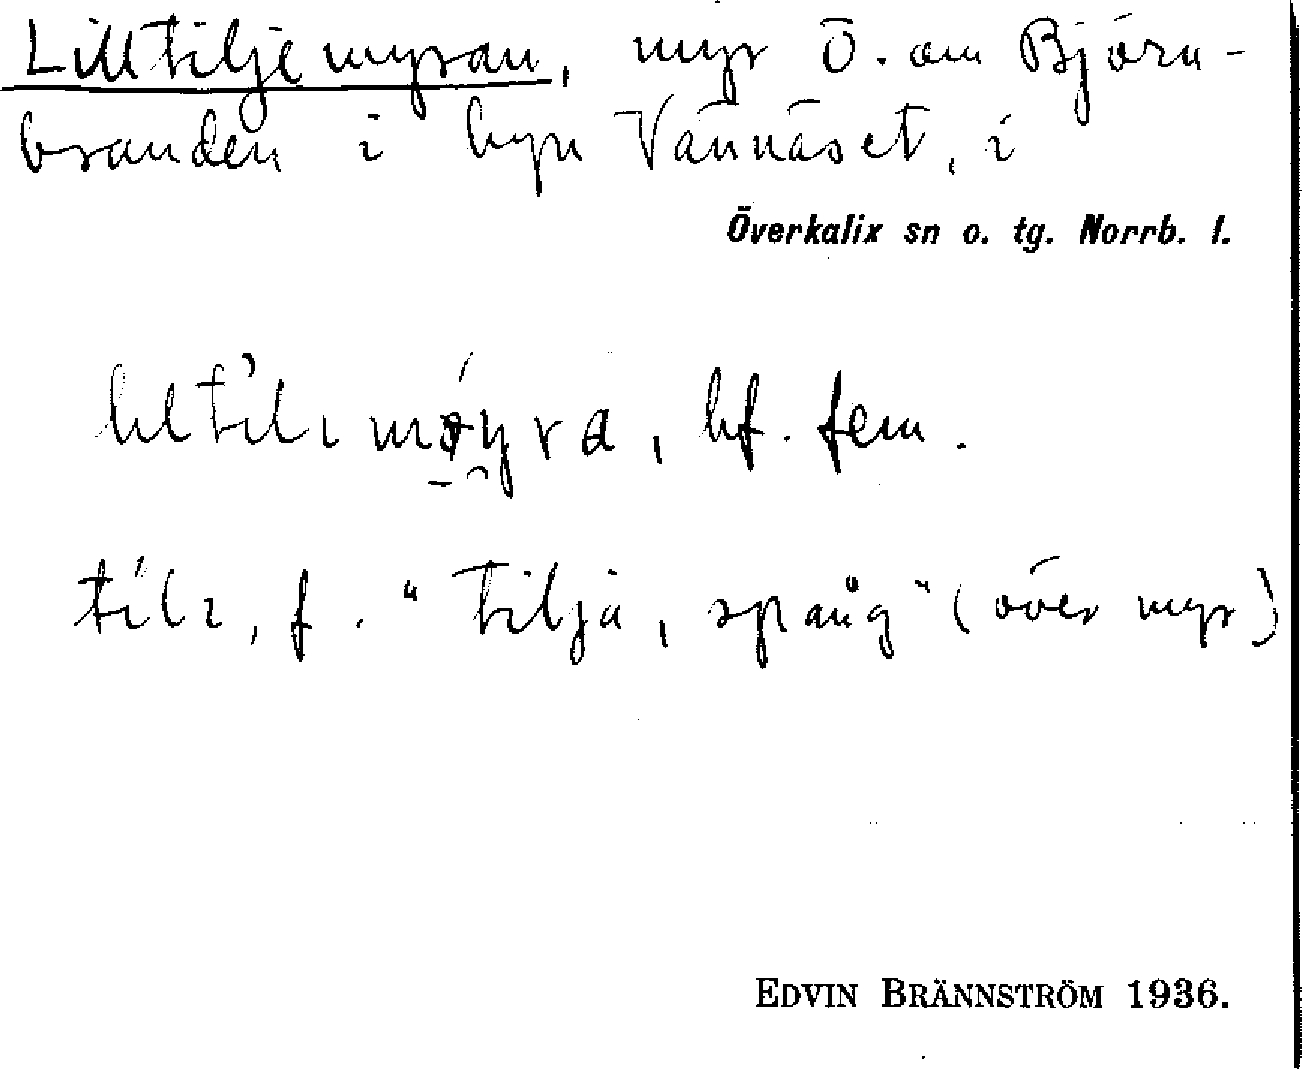 Lilltiljemyran, myr ö. om Björn-
branden i byn Vännäset, i
Överkalix sn o. tg. Norrb. l.
bf. fem.
f. "tilja, spång" (över myr)
EDVIN BRÄNNSTRÖM 1936.